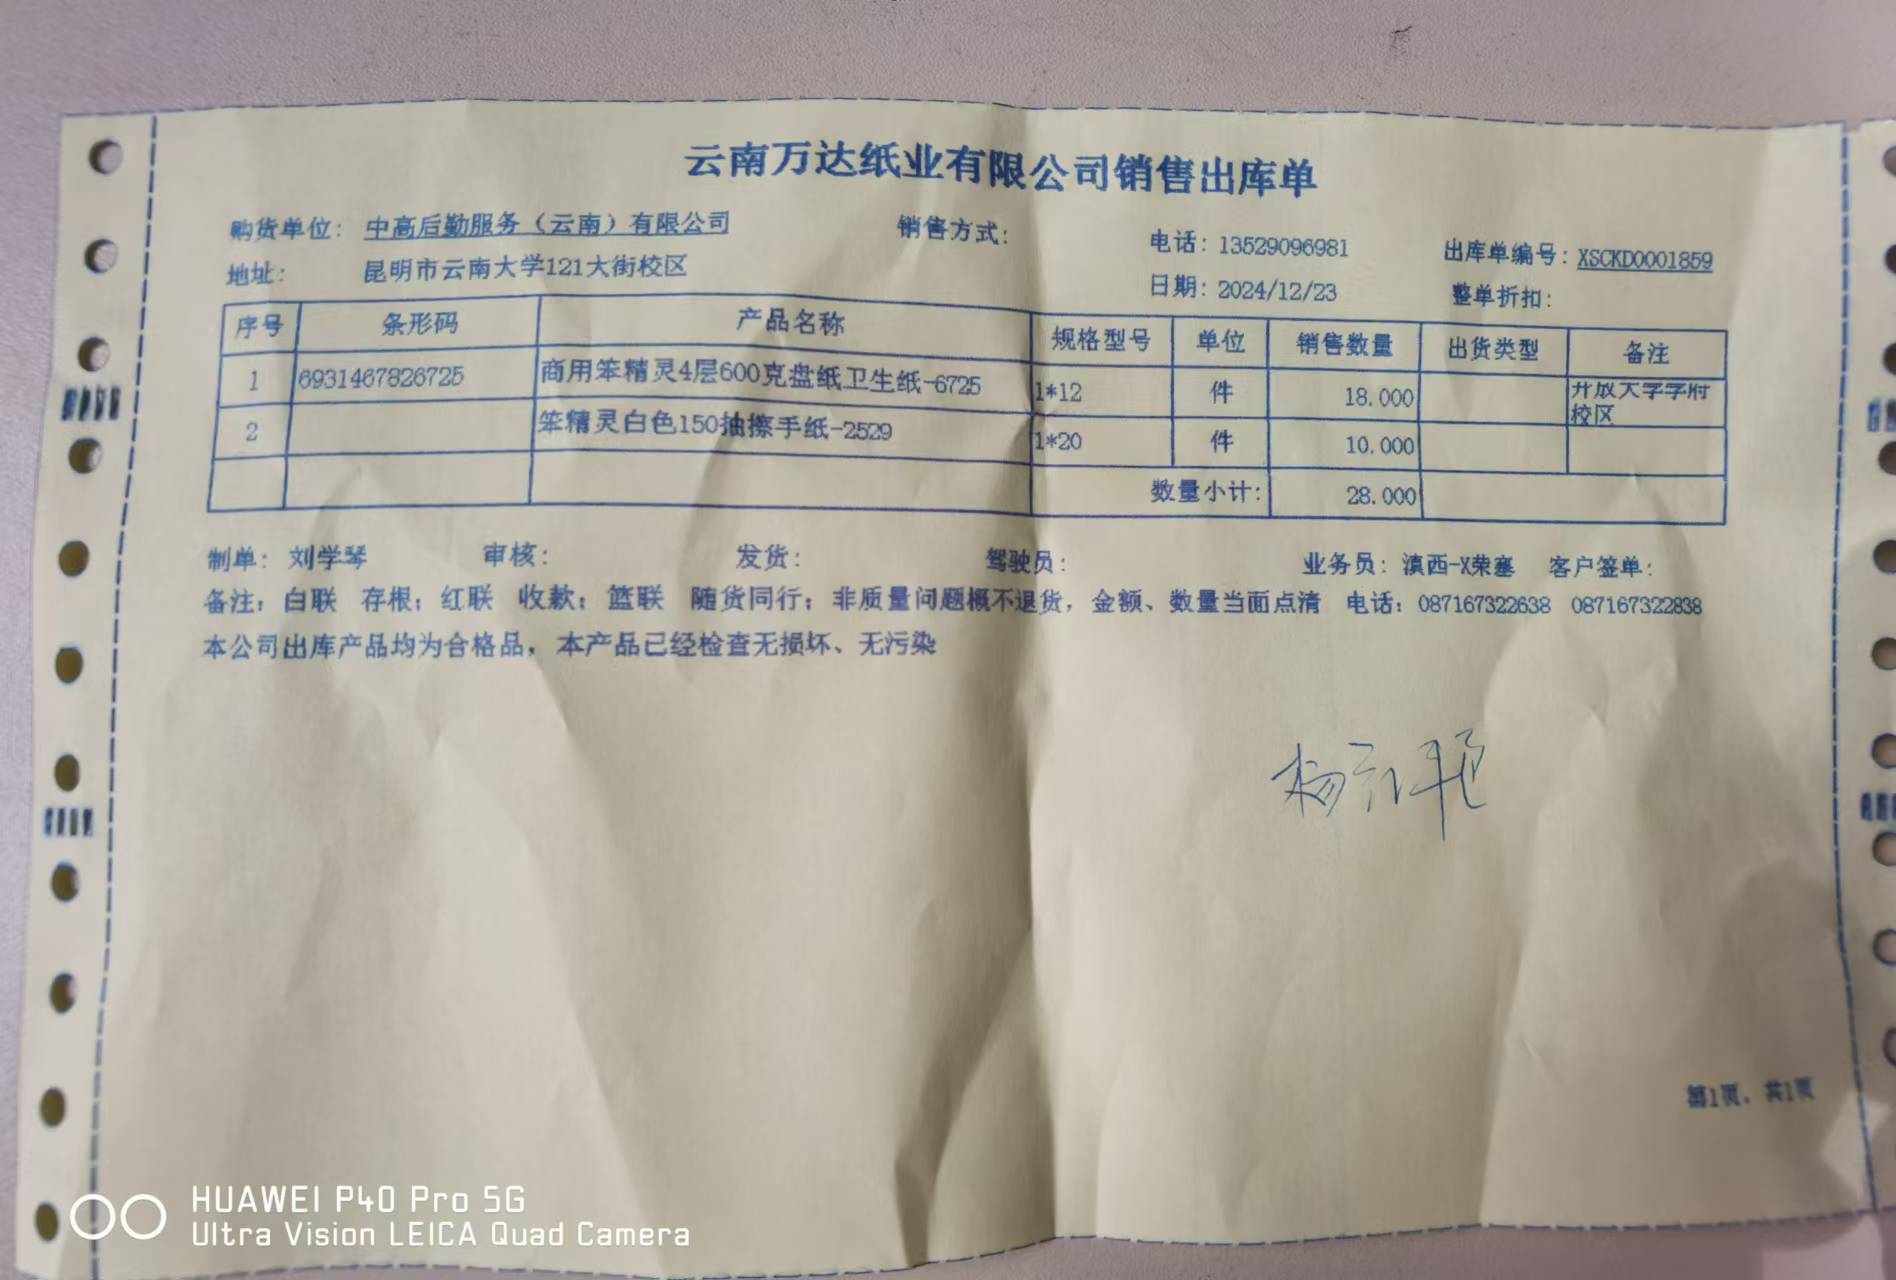 云南万达纸业有限公司销售出库单
购货单位: 中高后勤服务（云南）有限公司 销售方式: 电话: 13529096981 出库单编号: XSCKD0001859
地址: 昆明市云南大学121大街校区 日期: 2024/12/23 整单折扣:
序号 条形码 产品名称 规格型号 单位 销售数量 出货类型 备注
1 6931467826725 商用笨精灵4层600克盘纸卫生纸-6725 1*12 件 18.000 开放大学学府校区
2 笨精灵白色150抽擦手纸-2529 1*20 件 10.000
数量小计: 28.000
制单: 刘学琴 审核: 发货: 驾驶员: 业务员: 滇西-X荣塞 客户签单:
备注: 白联 存根; 红联 收款; 篮联 随货同行; 非质量问题概不退货, 金额、数量当面点清 电话: 087167322638 087167322838
本公司出库产品均为合格品, 本产品已经检查无损坏、无污染
杨
第1页, 共1页
HUAWEI P40 Pro 5G
Ultra Vision LEICA Quad Camera